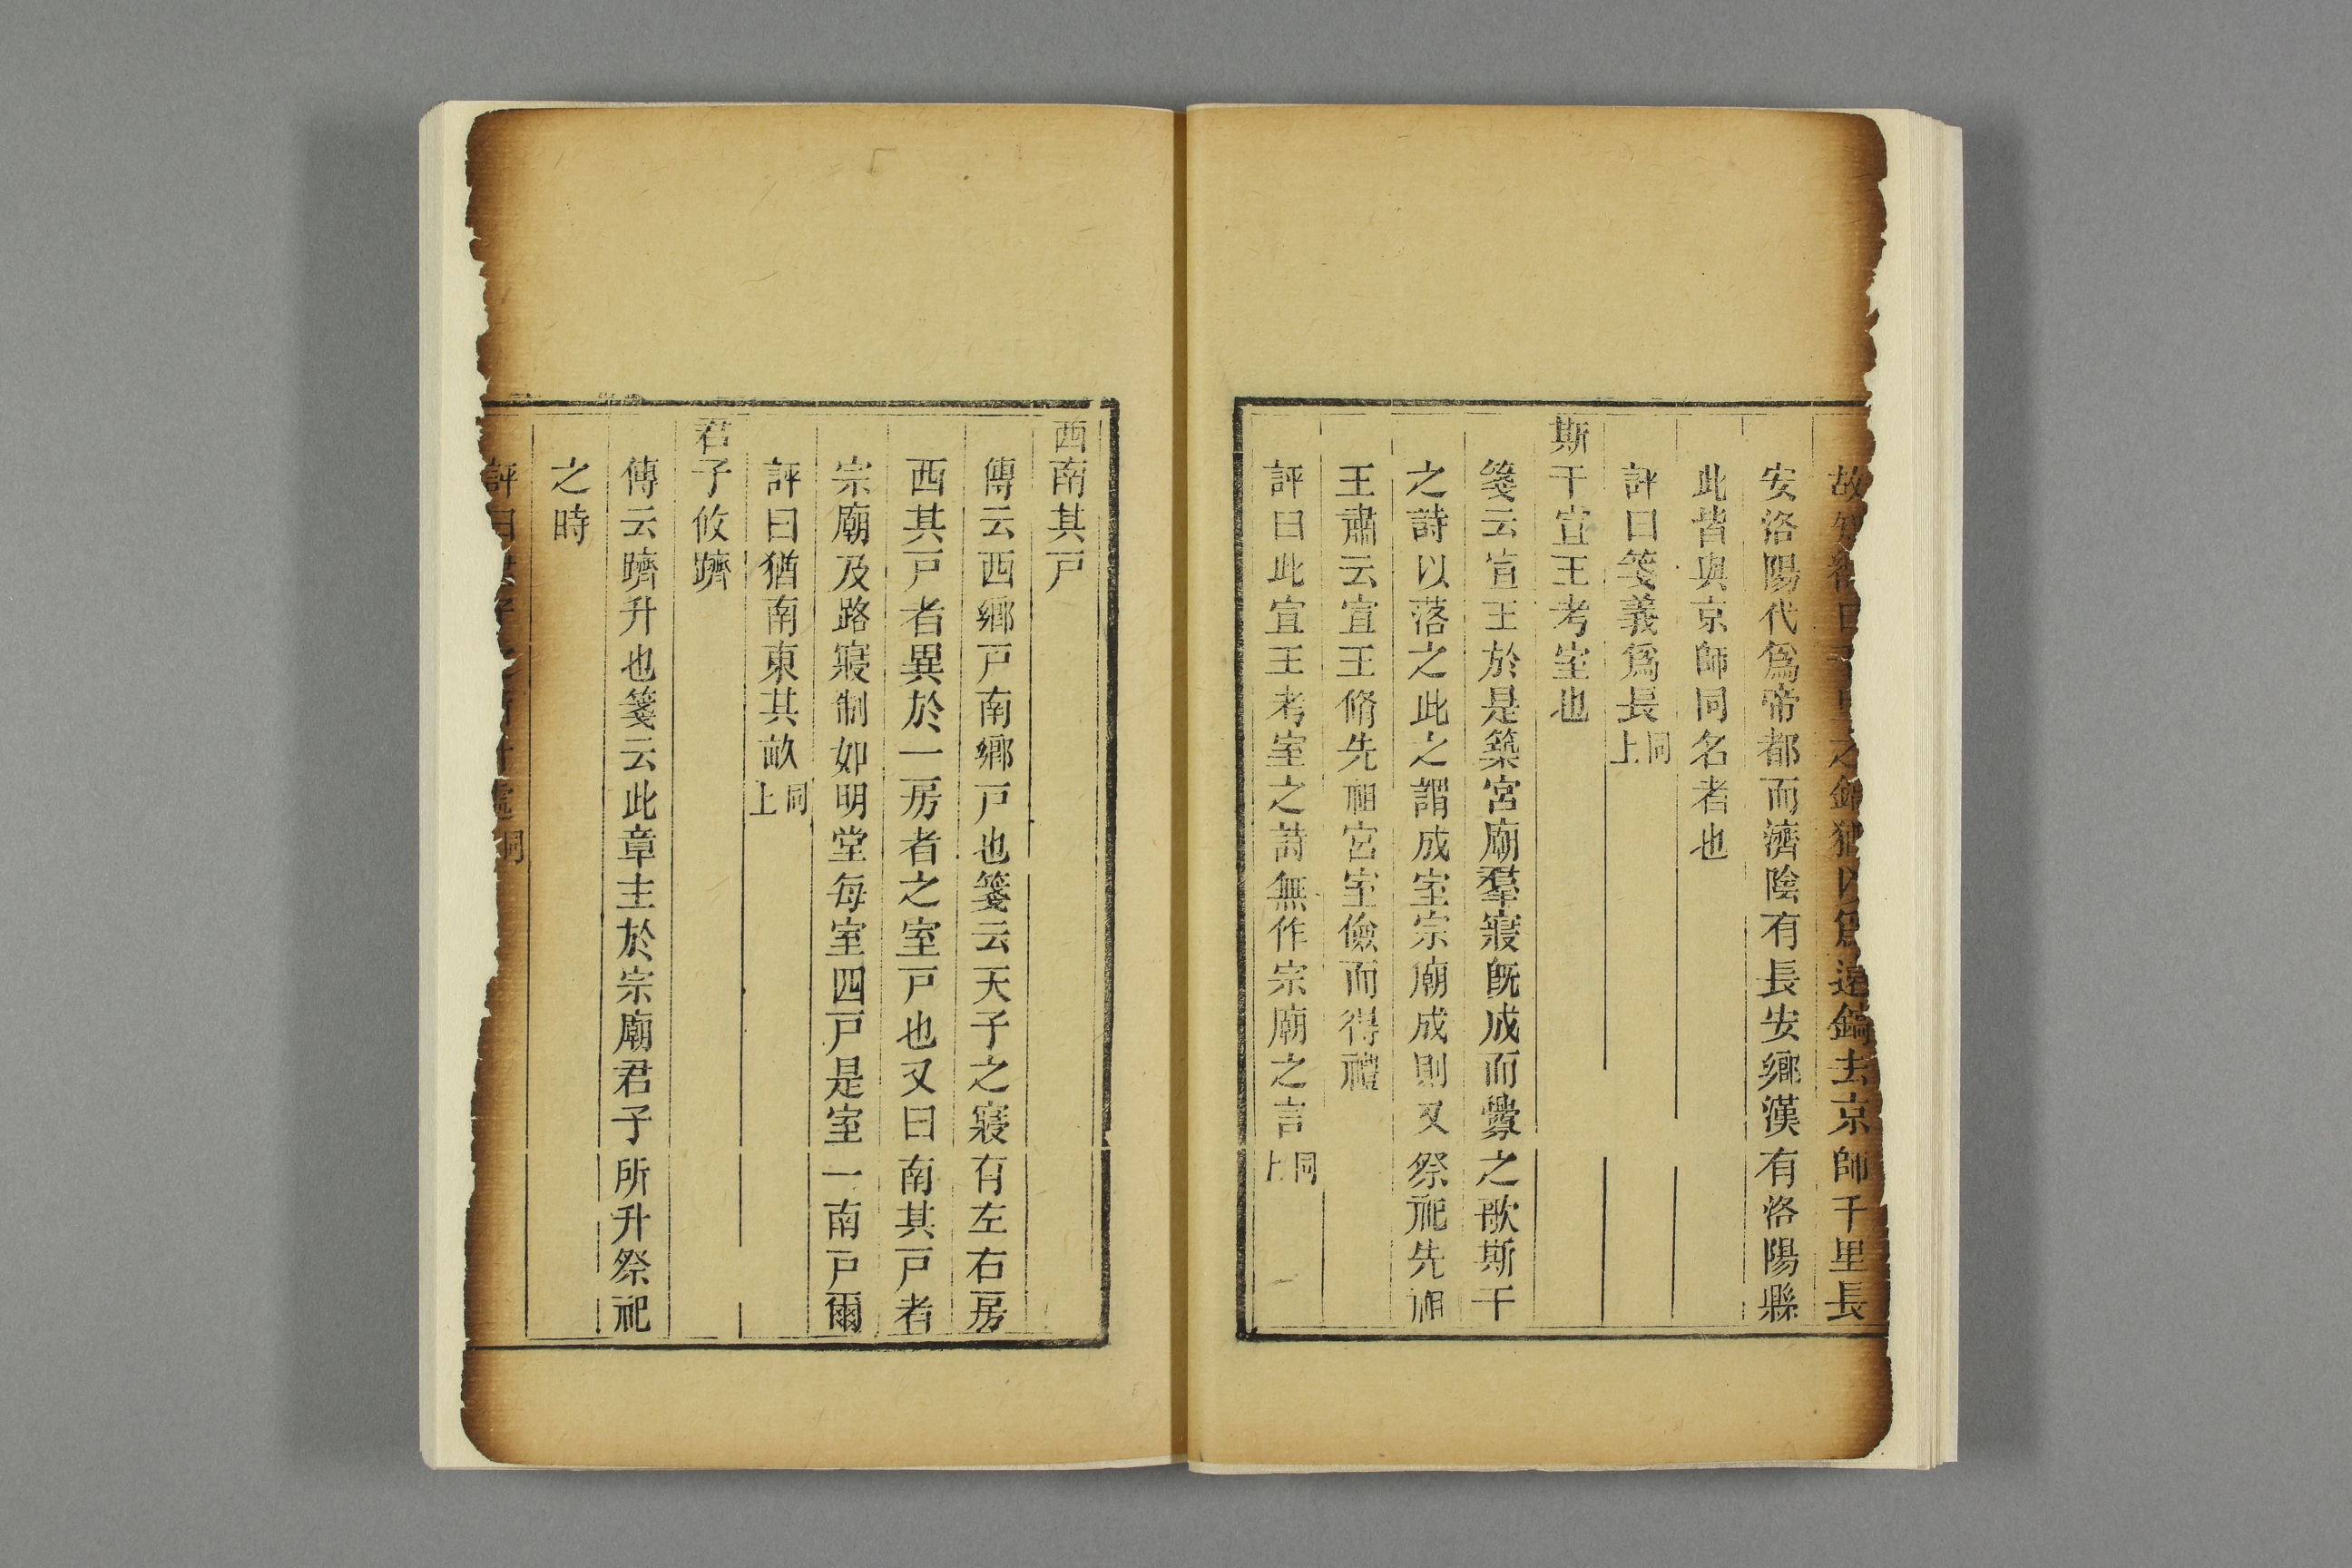 故劉向曰千里之鎬猶以爲遠鎬去京師千里長
安洛陽代爲帝都而濟陰有長安鄉漢有洛陽縣
此皆與京師同名者也
評曰箋義爲長同上
斯干宣王考室也
箋云宣王於是築宮廟羣寢旣成而釁之歌斯干
之詩以落之此之謂成室宗廟成則又祭祀先祖
王肅云宣王脩先祖宮室儉而得禮
評曰此宣王考室之詩無作宗廟之言同上
西南其戸
傳云西鄉戸南鄉戸也箋云天子之寢有左右房
西其戸者異於一房者之室戸也又曰南其戸者
宗廟及路寢制如明堂每室四戸是室一南戸爾
評曰猶南東其畝同上
君子攸躋
傳云躋升也箋云此章主於宗廟君子所升祭祀
之時
評曰